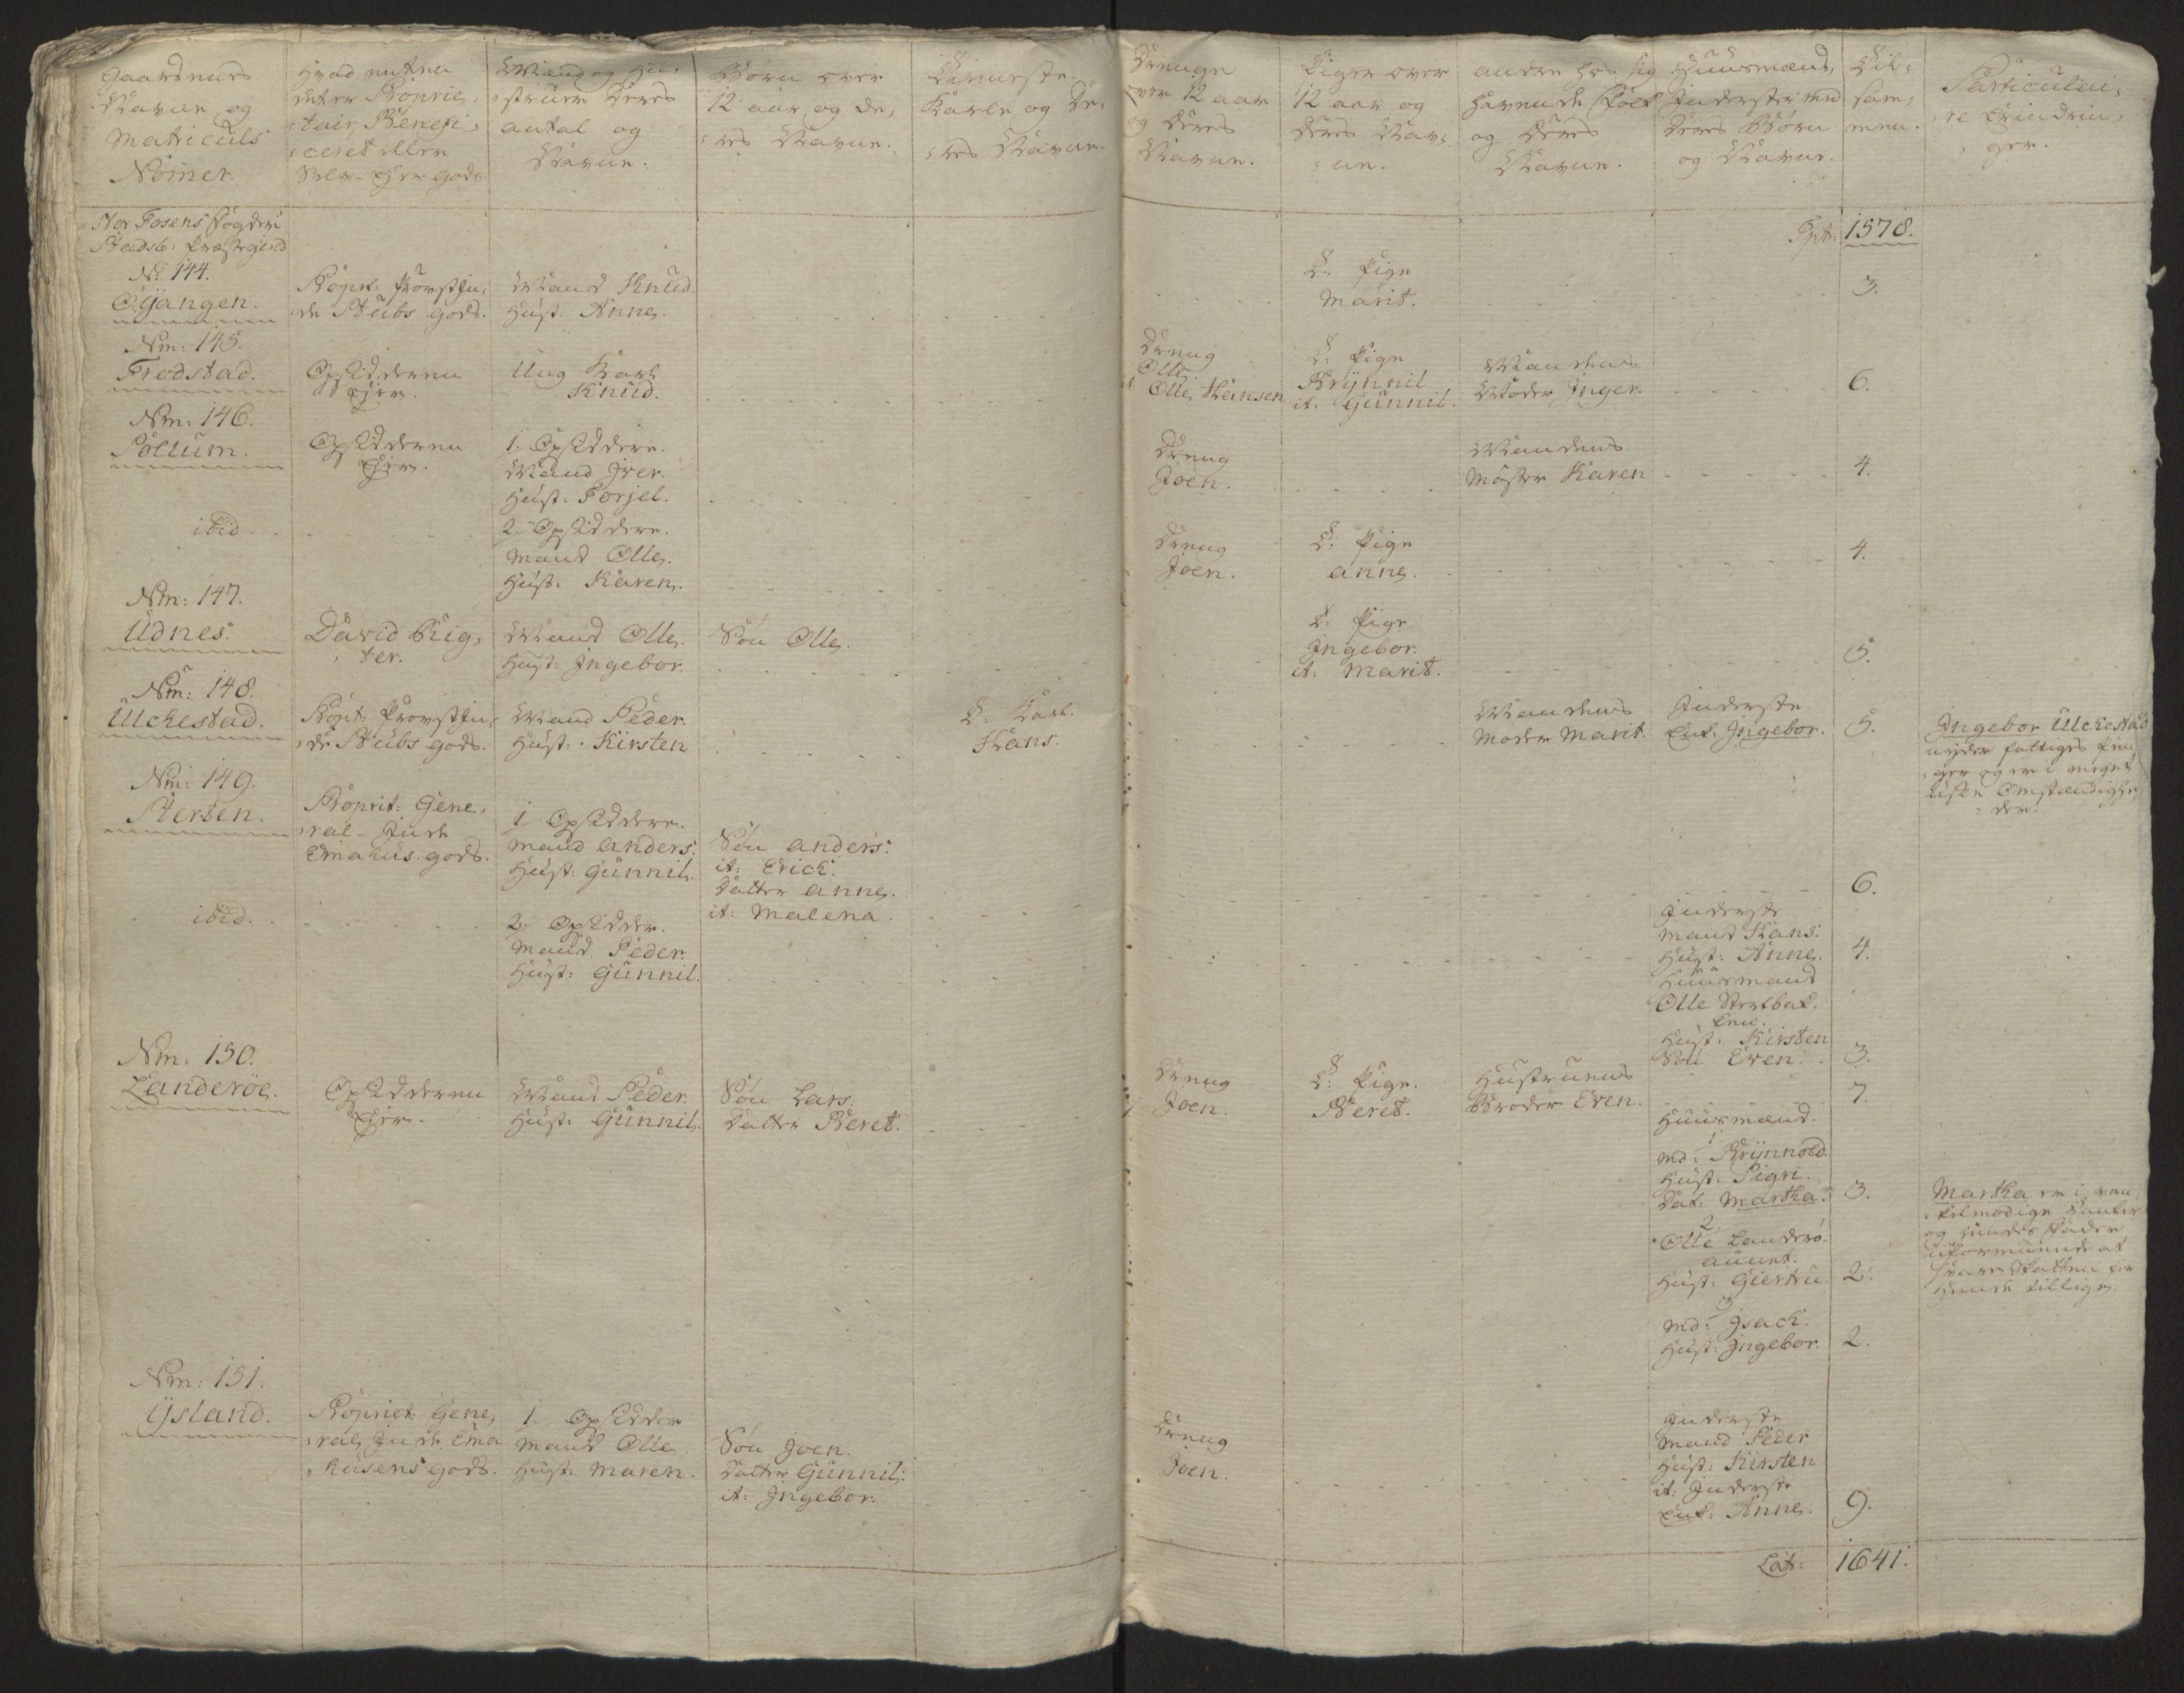 Gaardenes
Navne og
Matriculs
Nomer.
Hvad enten
det er Proprie,
tair, Benefi,
ceret eller
Selv-Ejer gods
Mænd og Hu,
struer Deres
antal og
Navne.
Børn over
12 aar og de,
res Navne.
Tieneste
Karle og De,
res Navne.
Drenge
over 12 aar
og Deres
Navne.
Piger over
12 aar og
Deres Nav,
ne.
andre hos sig
havende Folk
og Deres
Navne.
Huusmænd,
Inderster med
Deres Børn
og Navne.
Til,
sam,
men.
Particulai,
re Erindrin,
ger.
Nor Fosens Fogderi
Stadsb: Præstegield
Tpt: 1578.
No: 144.
Opangen.
Propr: Provstin,
de Stubs gods.
Mand Knud.
Hust: Anne.
T: Pige
Marit.
3.
Nm: 145.
Fredstad.
Opsidderen
Ejer.
Ung Karl
Knud.
Dreng
Olle
it. Olle Hansen
T: Pige
Brynnil
it: Gunnil.
Mandens
Moder Inger.
6.
Nm: 146.
Sollum.
Opsidderen
Ejer.
1. Opsiddere.
Mand Iver.
Hust: Torjel.
Dreng
Joen.
Mandens
Moster Karen
4.
ibid
2. Opsiddere.
Mand Olle.
Hust: Karen.
Dreng
Joen.
T: Pige
Anne.
4.
Nm: 147.
Udnes.
David Rig,
ter.
Mand Olle.
Hust: Ingebor.
Søn Olle.
T: Pige
Ingebor.
it: Marit.
5.
Nm: 148.
Ulckestad.
Propt: Provstin,
de Stubs gods.
Mand Peder.
Hust: Kirsten
T: Karl.
Hans.
Mandens
Moder Marit.
Inderste
Enk: Ingebor.
5.
Ingebor Ulckestad
nyder fattiges Pen,
ge og er i meget
usle Omstændighe,
der.
Nm: 149.
Sterten.
Proprit: Gene,
ral- Inde
Emahus gods.
1. Opsiddere.
Mand Anders:
Hust: Gunnil.
Søn Anders:
it: Erich.
Datter Anne.
it: Malena.
6.
ibid.
2. Opsidder.
Mand Peder.
Hust: Gunnil.
Inderste
Mand Hans:
Hust: Anne.
4.
Huusmand
Olle Stertbak,
ken.
Hust: Kirsten
Søn Even.
3.
Nm: 150.
Landerøe.
Opsidderen
Ejer.
Mand Peder.
Hust: Gunnil.
Søn Lars.
Datter Beret.
Dreng
Joen.
T: Pige.
Beret.
Hustruens
Broder Even.
7.
Huusmænd.
1
Md: Brynnold.
Hust: Sigri.
Dat: Martha.
3.
Martha er i van,
og hendes Fader
uformuende at
svare Skatten for
hende tillige.
2.
Olle Landerø,
aunet.
Hust: Giertru.
2.
3
Md: Isach.
Hust: Ingebor.
2.
Nm: 151.
Ysland.
Propriet: Gene,
ral, Inde Ema
husens gods.
1. Opsidder
Mand Olle.
Hust: Maren.
Søn Joen.
Datter Gunnil:
it: Ingebor.
Dreng
Joen.
Inderste
Mand Peder
Hust: Kirsten
it: Inderste
Enk: Anne.
9.
Lat: 1641.